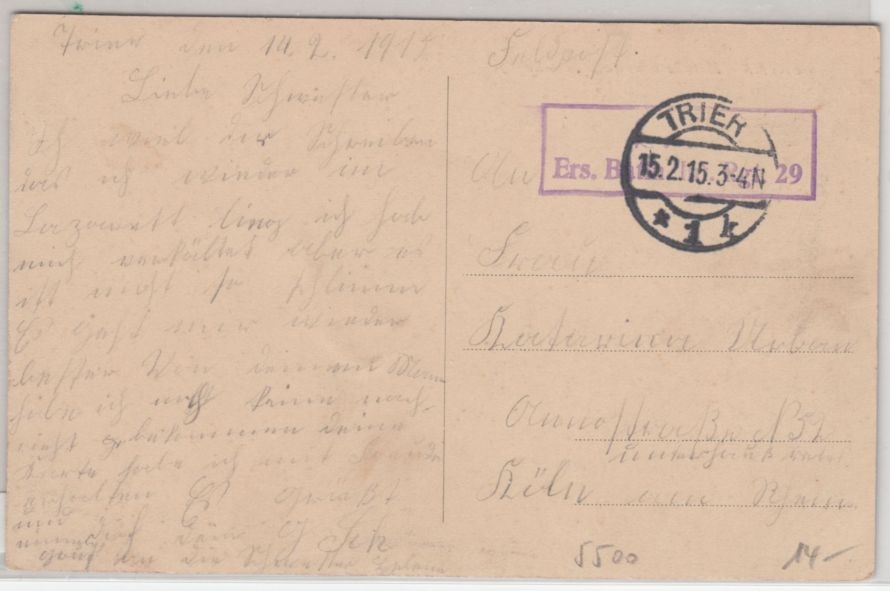 Trier den 14.2.1915
Liebe Schwester
Ich will dir Schreiben
das ich wieder im
Lazarett ling ich hab
mich verkältet aber es
ist nicht so schlimm
Es geht mir wieder
besser Von deinem Mann
habe ich noch keine nach-
richt gebekommen deine
Karte habe ich mit Freude
erhalten Es Grüßt
dich dein
die Schwester
Feldpost
An
Ers. 29
TRIER
15.2.15.3-4N
* 1 k
Frau
Katarina Urban
Annostraße N 51
Köln am Rhein
5500
14-